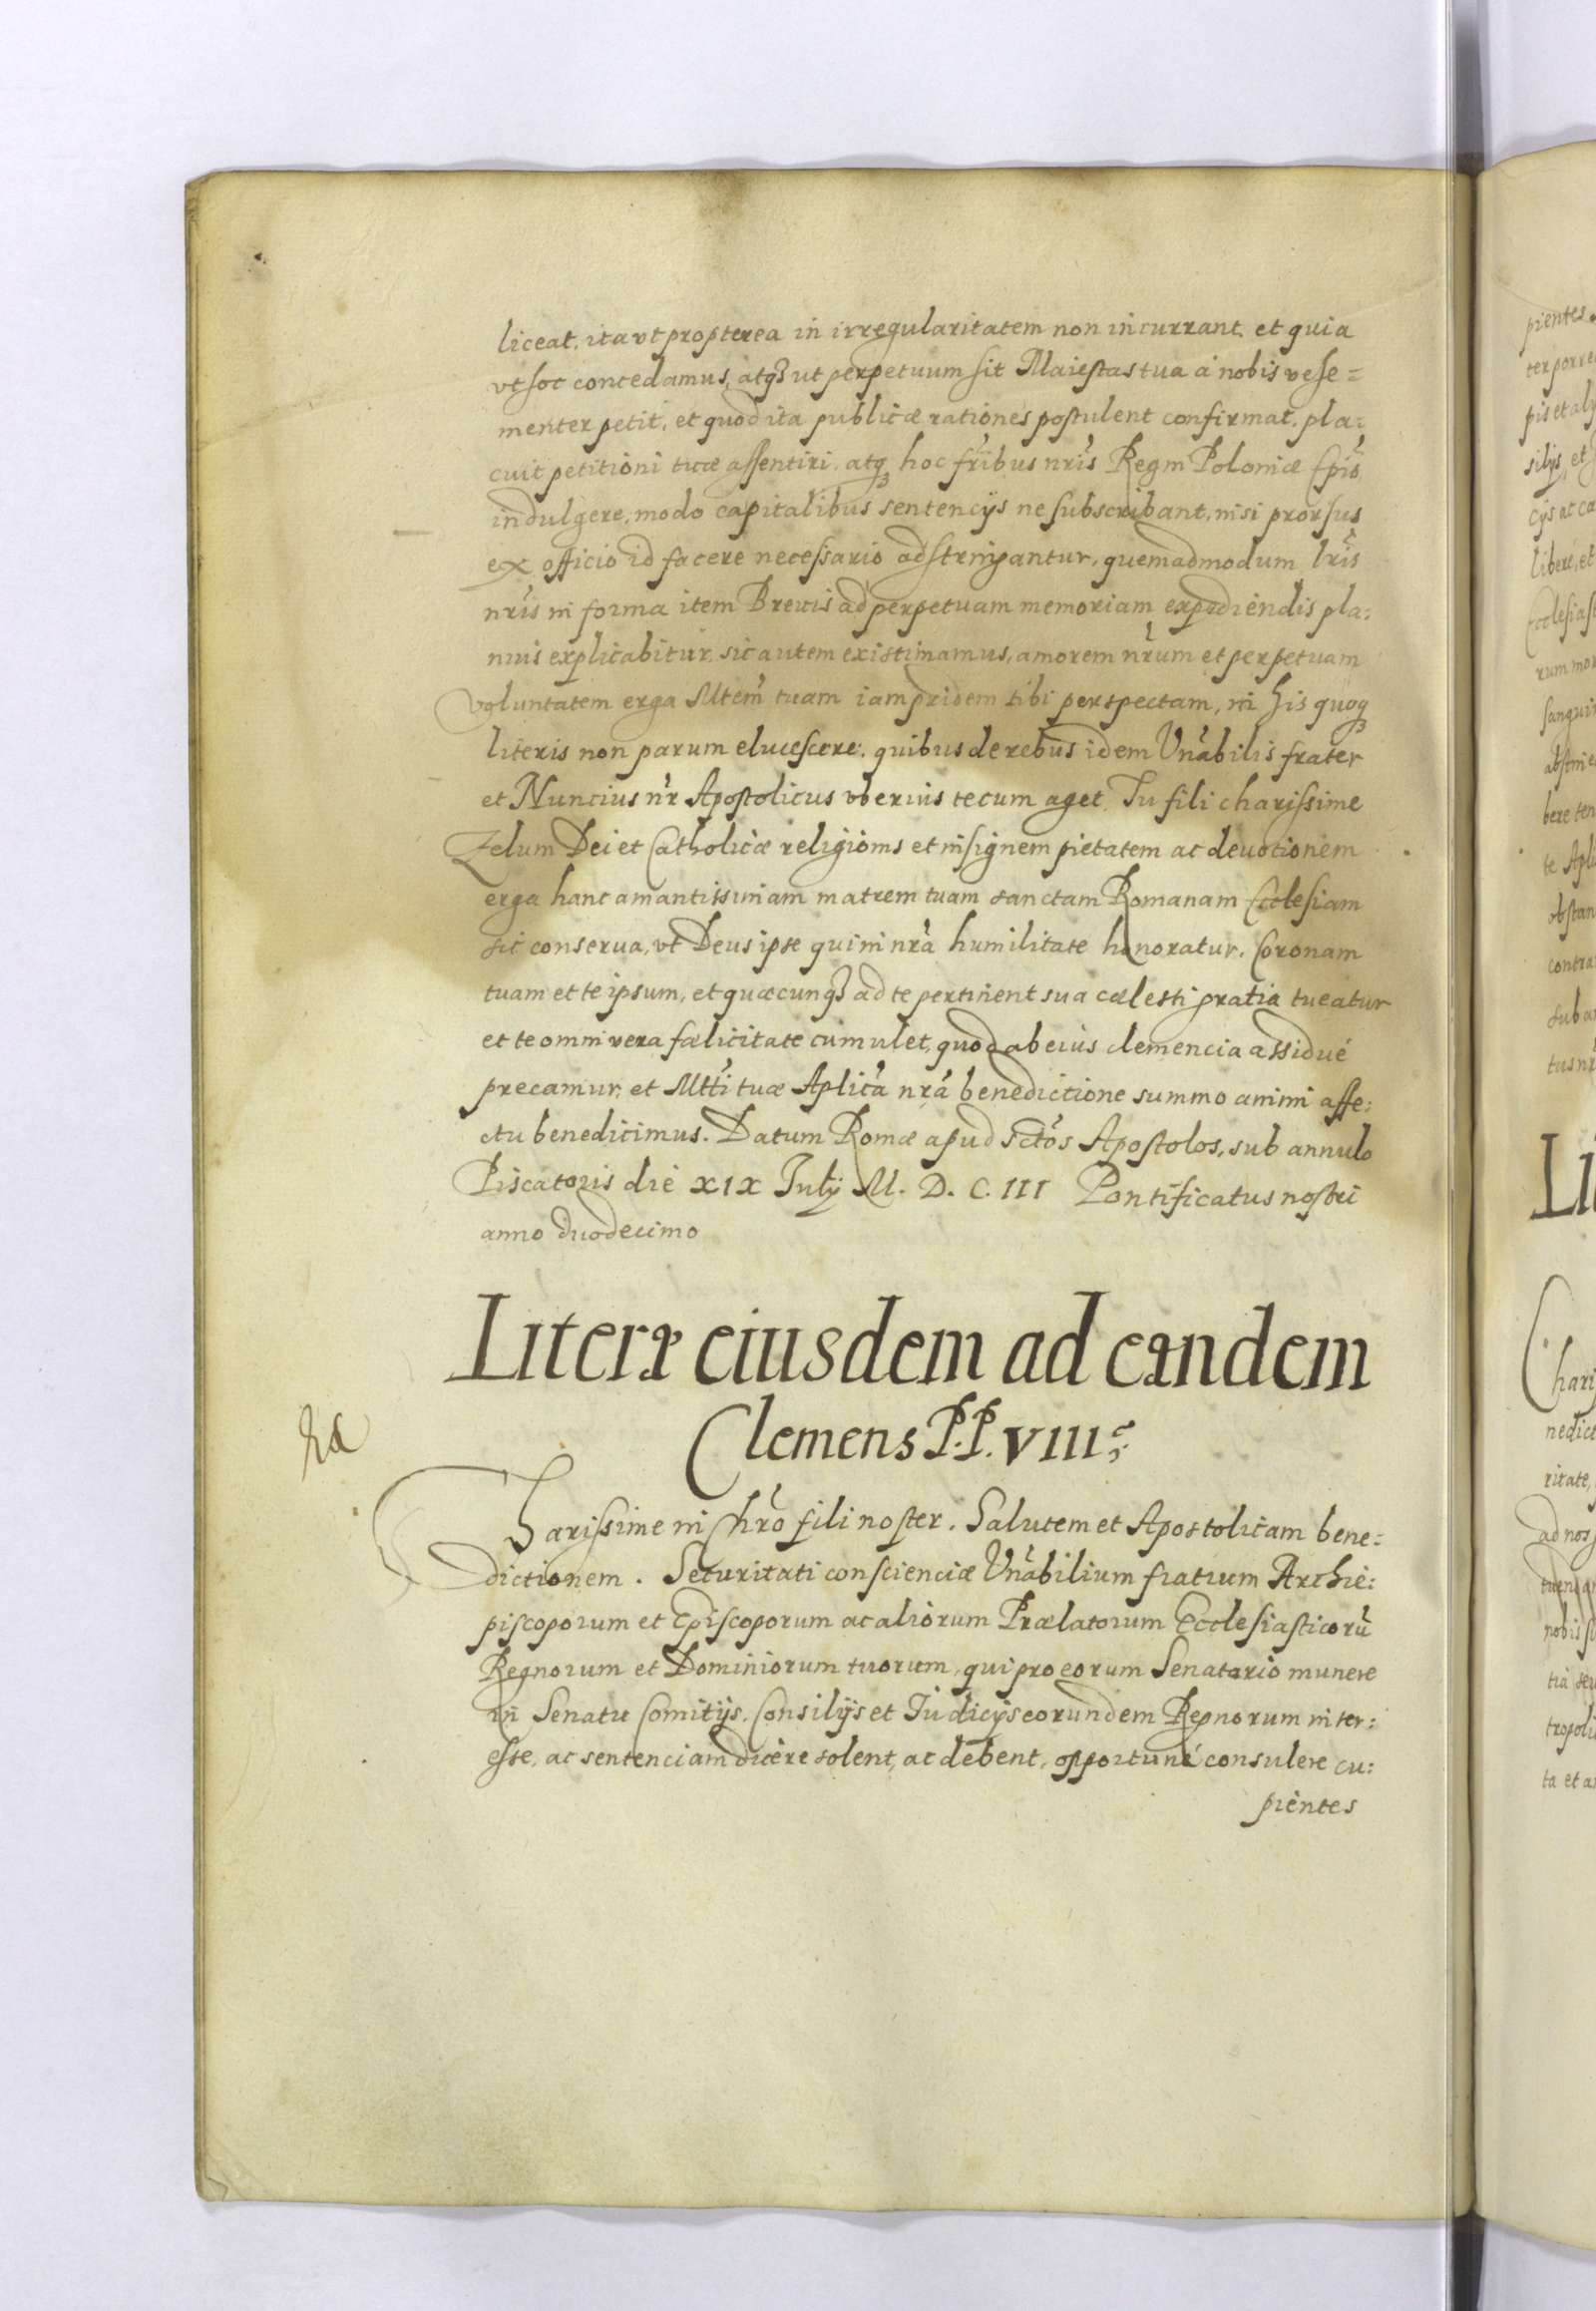 liceat. ita vt propterea in irregularitatem non incurrant. et quia
vt hoc concedamus, atqꝫ ut perpetuum sit Maiestas tua à nobis vehe=
menter petit, et quod ita publicæ rationes postulent confirmat. pla:
cuit petitioni tuæ assentiri. atqꝫ hoc fr̃ibus nr̃is Regni Poloniæ Ep̃is
indulgere, modo capitalibus sentencijs ne subscribant, nisi prorsus
ex officio id facere necessario adstringantur, quemadmodum lr̃is
nr̃is in forma item Breuis ad perpetuam memoriam expediendis pla:
nius explicabitur. sic autem existimamus, amorem nr̃um et perpetuam
voluntatem erga Mtem̃ tuam iampridem tibi perspectam, in his quoqꝫ
literis non parum elucescere. quibus de rebus idem Vn̄abilis frater
et Nuncius nr̃ Apostolicus vberius tecum aget. Tu fili charissime
Zelum Dei et Catholicæ religionis et insignem pietatem ac deuotionem
erga hanc amantissimam matrem tuam sanctam Romanam Ecclesiam
sic conserua, vt Deus ipse qui in nr̃a humilitate honoratur. Coronam
tuam et te ipsum, et quæcunqꝫ ad te pertinent sua cælesti gratia tueatur
et te omni vera fælicitate cumulet, quod ab eius clemencia assidué
precamur, et Mtti tuæ Aplicã nr̃a benedictione summo animi affe:
ctu benedicimus. Datum Romæ apud sctõs Apostolos, sub annulo
Piscatoris die XIX Julij M. D. C. III Pontificatus nostri
anno duodecimo
Literæ eiusdem ad eandem
Clemens P.P. VIII
Charissime in Chr̃o fili noster. Salutem et Apostolicam bene=
dictionem. Securitati conscienciæ Vn̄abilium fratrum Archie:
piscoporum et Episcoporum ac aliorum Prælatorum Ecclesiasticorũ
Regnorum et Dominiorum tuorum, qui pro eorum Senatorio munere
in Senatu Comitijs. Consilijs et Iudicijs eorundem Regnorum inter:
esse, ac sentenciam dicere solent, ac debent, opportuné consulere cu:
pientes